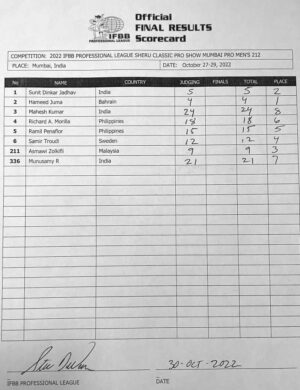 IFBB
PROFESSIONAL LEAGUE
Official
FINAL RESULTS
Scorecard
COMPETITION: 2022 IFBB PROFESSIONAL LEAGUE SHERU CLASSIC PRO SHOW MUMBAI PRO MEN'S 212
PLACE: Mumbai, India DATE: October 27-29, 2022
No NAME COUNTRY JUDGING FINALS TOTAL PLACE
1 Sunit Dinkar Jadhav India 5 5 2
2 Hameed Juma Bahrain 4 4 1
3 Mahesh Kumar India 24 24 8
4 Richard A. Morilla Philippines 18 18 6
5 Ramil Penaflor Philippines 15 15 5
6 Samir Troudi Sweden 12 12 4
211 Asmawi Zolkifli Malaysia 9 9 3
336 Munusamy R India 21 21 7
30-OCT-2022
IFBB PROFESSIONAL LEAGUE DATE